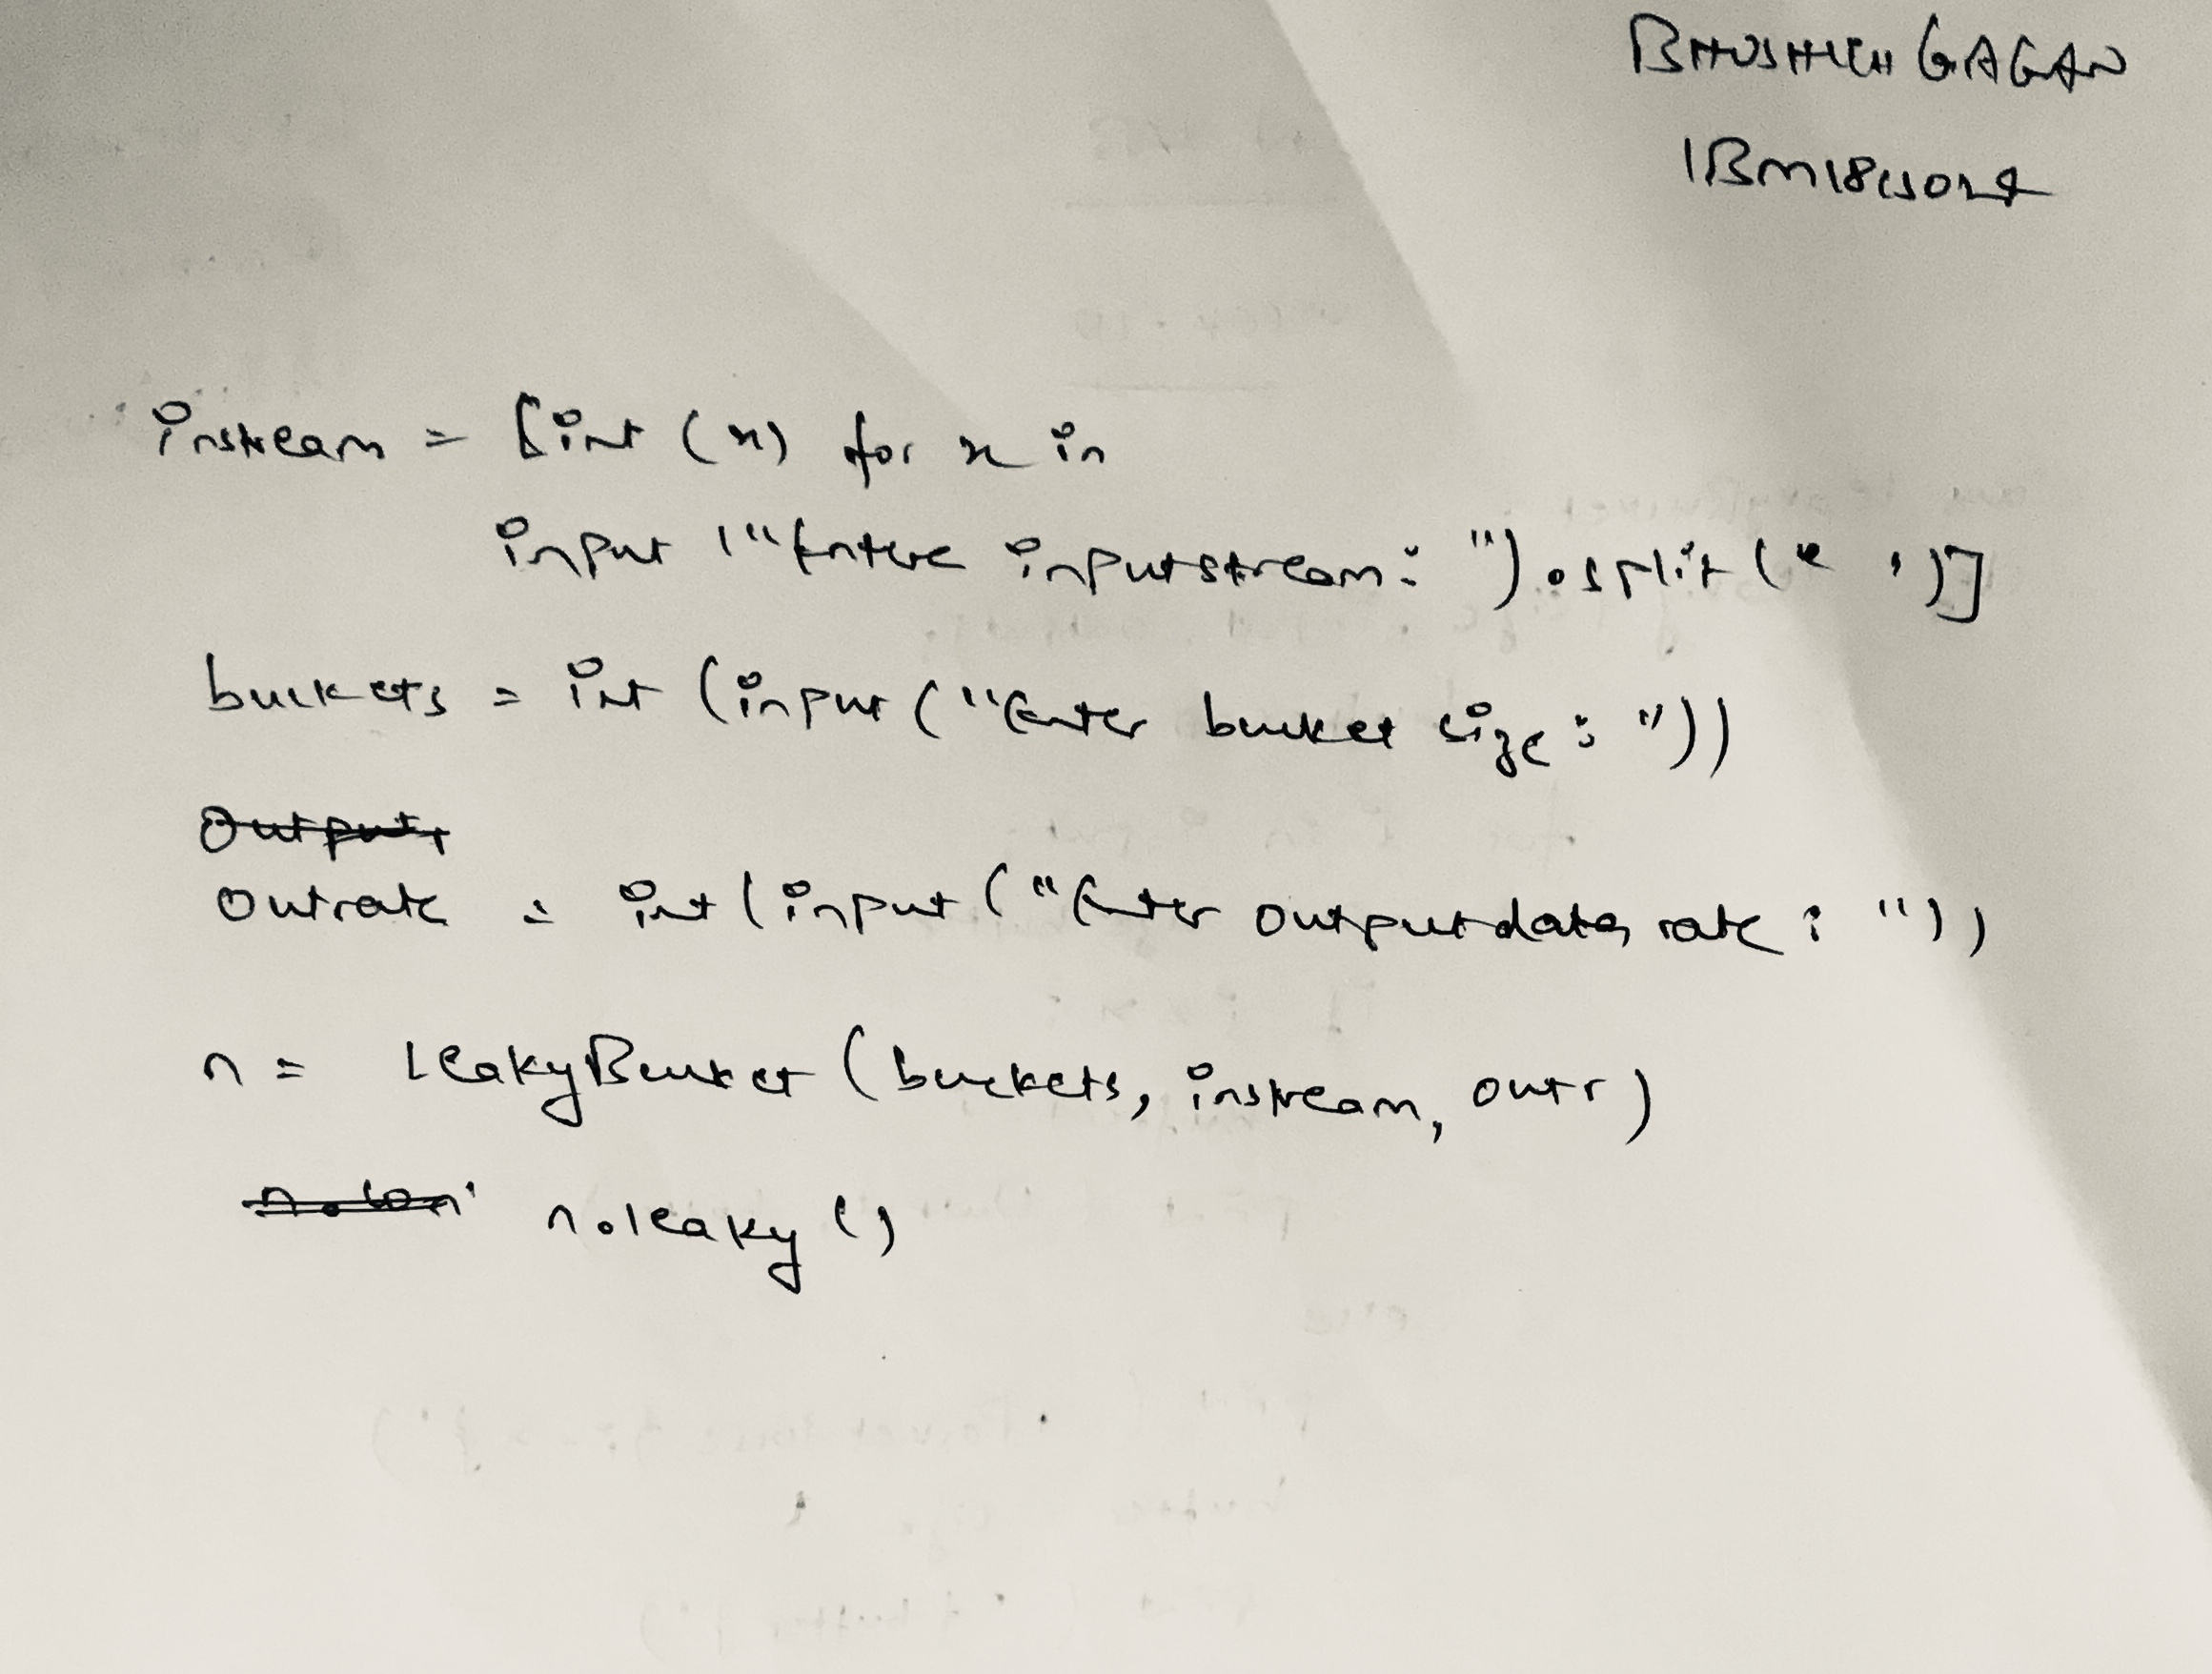 GAGAN
instream = [int (x) for x in
input ("Enter inputstream: ").split(' ')]
buckets = int (input ("Enter bucket size: "))
Output
outrate = int (input ("Enter outputdata rate : "))
n = leakyBucket (buckets, instream, outr)
n.leaky ()